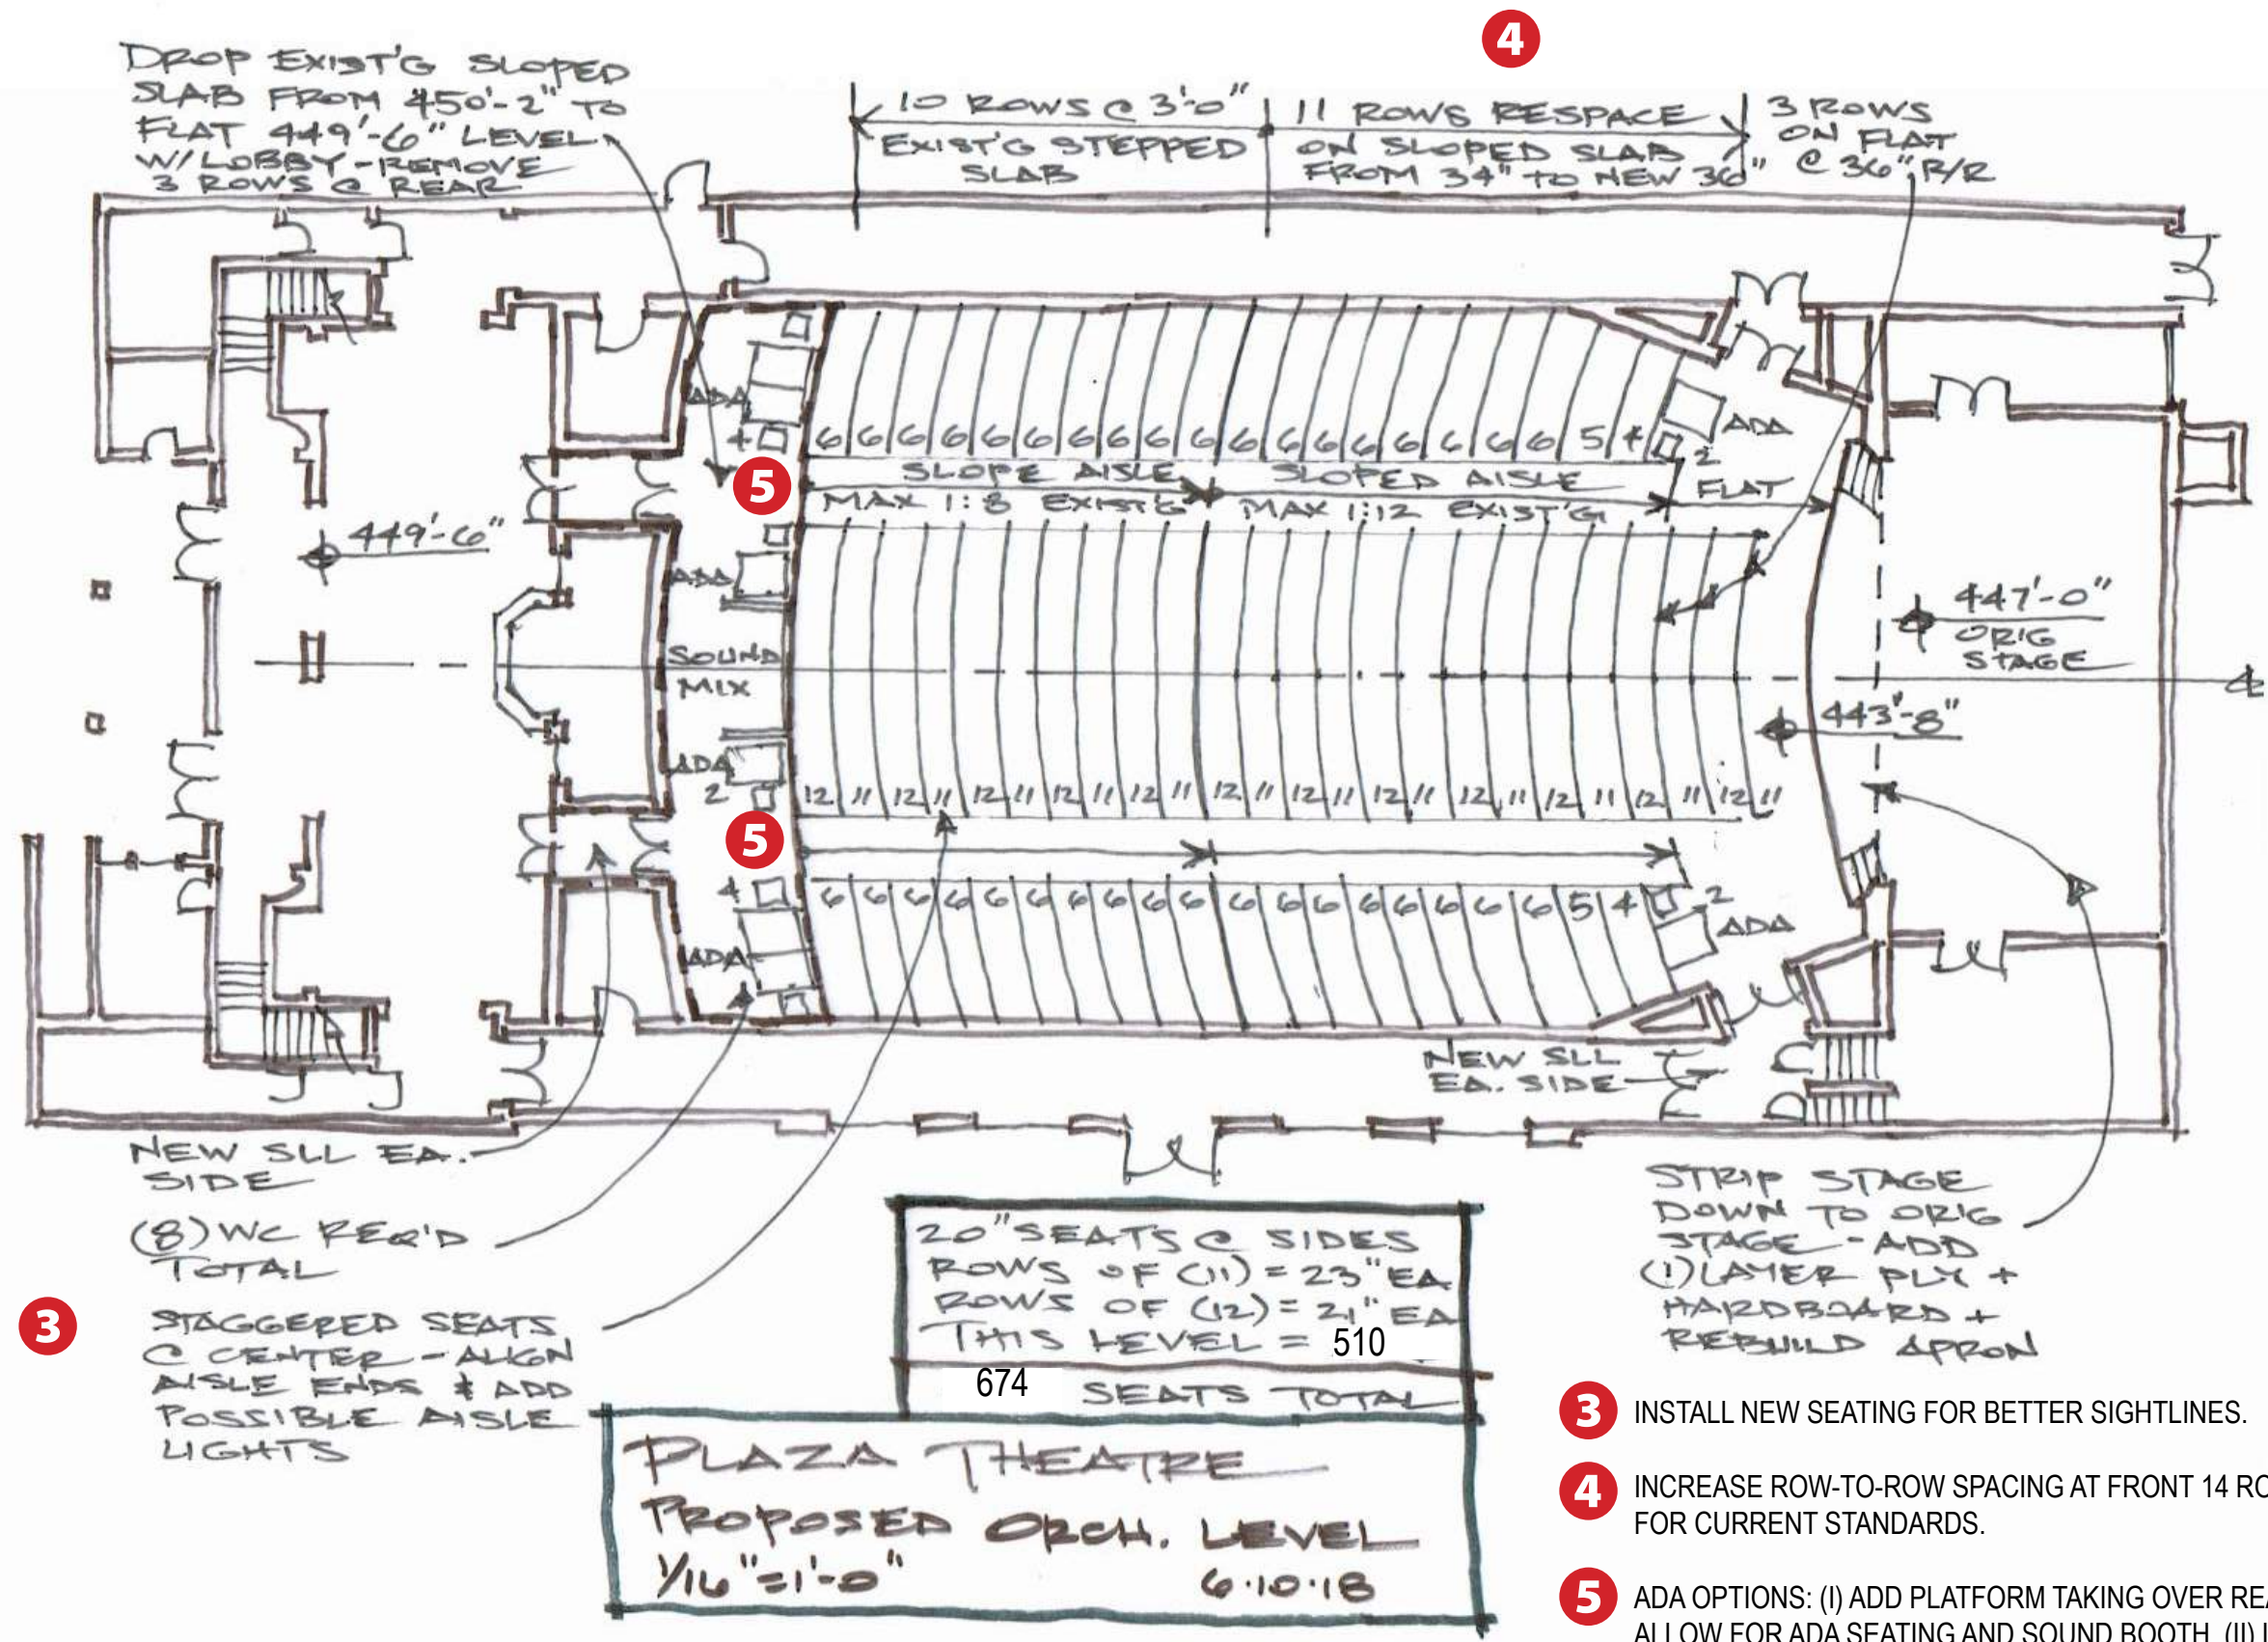 4
DROP EXIST'G SLOPED
SLAB FROM 450'-2" TO
FLAT 449'-6" LEVEL
W/LOBBY-REMOVE
3 ROWS @ REAR
10 ROWS @ 3'-0"
EXIST'G STEPPED
SLAB
11 ROWS RESPACE
ON SLOPED SLAB
FROM 34" TO NEW 36"
3 ROWS
ON FLAT
@ 36" R/R
ADA
4
6 6 6 6 6 6 6 6 6 6 6 6 6 6 6 6 6 6 5 4
ADA
2
5
SLOPE AISLE
MAX 1:8 EXIST'G
SLOPED AISLE
MAX 1:12 EXIST'G
FLAT
449'-6"
ADA
SOUND
MIX
447'-0"
ORIG
STAGE
443'-8"
ADA
2
12 11 12 11 12 11 12 11 12 11 12 11 12 11 12 11 12 11 12 11 12 11 12 11
5
4
6 6 6 6 6 6 6 6 6 6 6 6 6 6 6 6 6 6 5 4
2
ADA
ADA
NEW SLL
EA. SIDE
NEW SLL EA.
SIDE
(8) WC REQ'D
TOTAL
3
STAGGERED SEATS
@ CENTER - ALIGN
AISLE ENDS & ADD
POSSIBLE AISLE
LIGHTS
20" SEATS @ SIDES
ROWS OF (11) = 23" EA
ROWS OF (12) = 21" EA
THIS LEVEL = 510
674 SEATS TOTAL
PLAZA THEATRE
PROPOSED ORCH. LEVEL
1/16"=1'-0" 6.10.18
STRIP STAGE
DOWN TO ORIG
STAGE - ADD
(1) LAYER PLY +
HARDBOARD +
REBUILD APRON
3 INSTALL NEW SEATING FOR BETTER SIGHTLINES.
4 INCREASE ROW-TO-ROW SPACING AT FRONT 14
FOR CURRENT STANDARDS.
5 ADA OPTIONS: (I) ADD PLATFORM TAKING OVER
ALLOW FOR ADA SEATING AND SOUND BOOTH. (II)